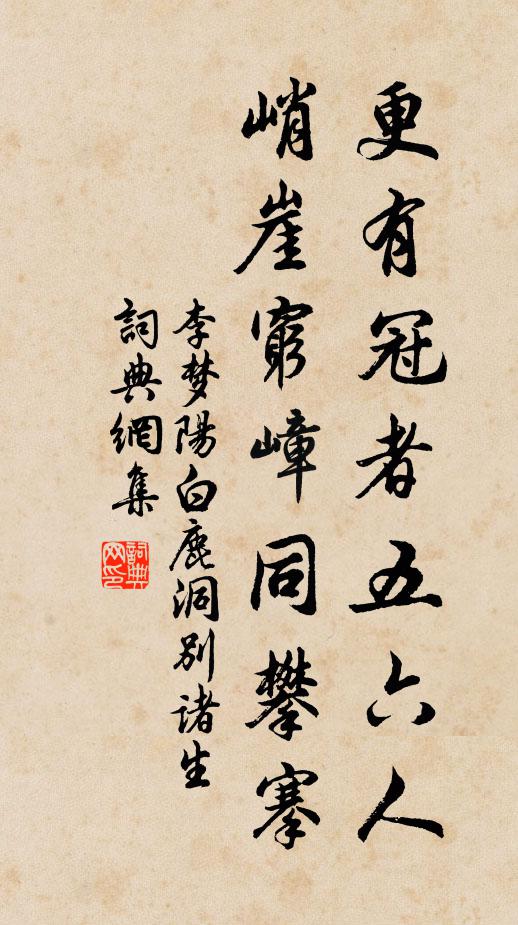 更有冠者五六人
峭崖窮嶂同攀搴
李梦陽白鹿洞别诸生
詞典網集
詞典网印